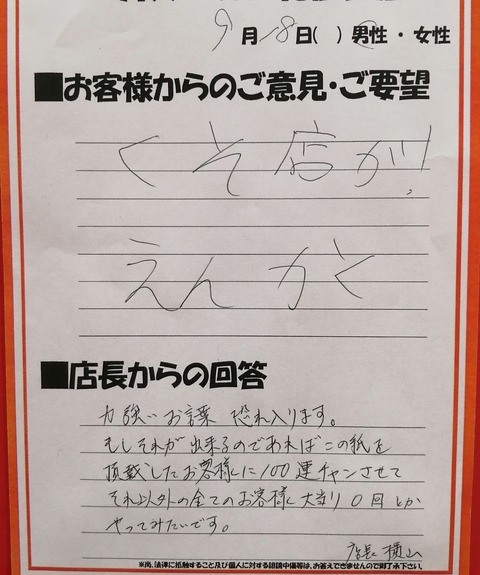 9月18日( ) 男性・女性
■お客様からのご意見・ご要望
くそ店が!
えんがく
■店長からの回答
力強いお言葉 恐れ入ります。
もしそれが出来るのであればこの紙を
頂戴したお客様に100連チャンさせて
それ以外の全てのお客様に大当り0回とか
やってみたいです。
店長 横山
※尚、法律に抵触すること及び個人に対する誹謗中傷等は、お答えできませんので御了承下さい。